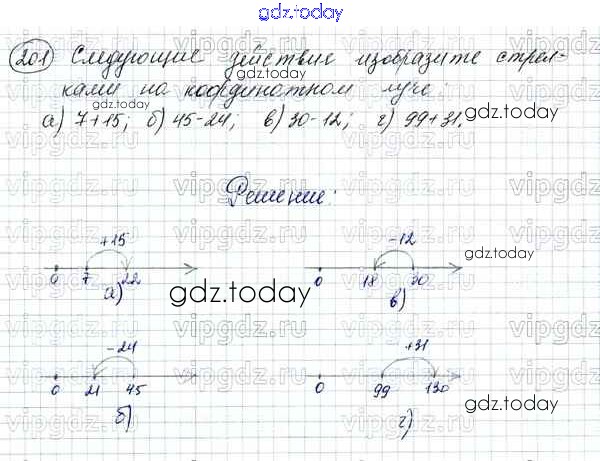 gdz.today
201 Следующие действие изобразите стрел-
ками на координатном луче:
gdz.today
а) 7+15; б) 45-24; в) 30-12; г) 99+31.
gdz.today
Решение:
+15
0 7 22
а)
-12
0 18 30
в)
gdz.today
gdz.today
-24
0 21 45
б)
+31
0 99 130
г)
gdz.today
vipgdz.ru